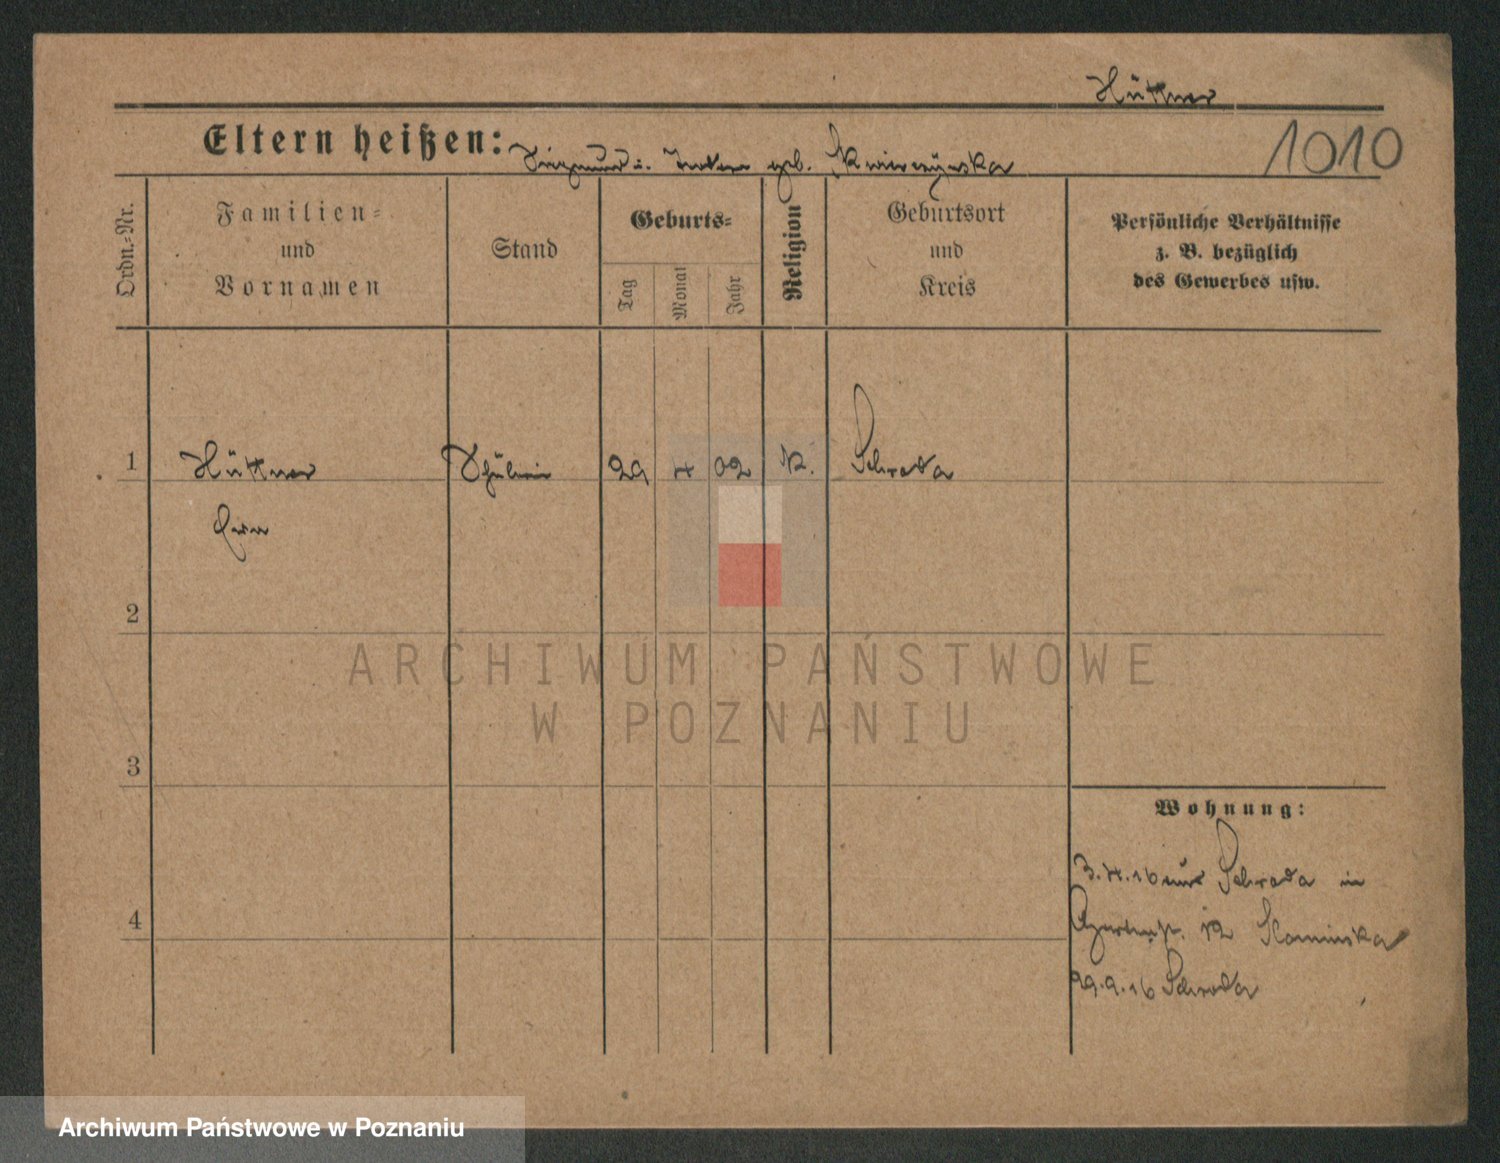 Hüttner
Eltern heißen: u. geb.
1010
Ordn.=Nr.
Familien=
und
Vornamen
Stand
Geburts=
Tag
Monat
Jahr
Religion
Geburtsort
und
Kreis
Persönliche Verhältnisse
z. B. bezüglich
des Gewerbes usw.
1 Hüttner Schülerin 29 4 02 K. Schroda
2
ARCHIWUM PAŃSTWOWE
W POZNANIU
3
Wohnung:
4
3.4.16 Schroda in
12 Slominska
29.9.16 Schroda
Archiwum Państwowe w Poznaniu